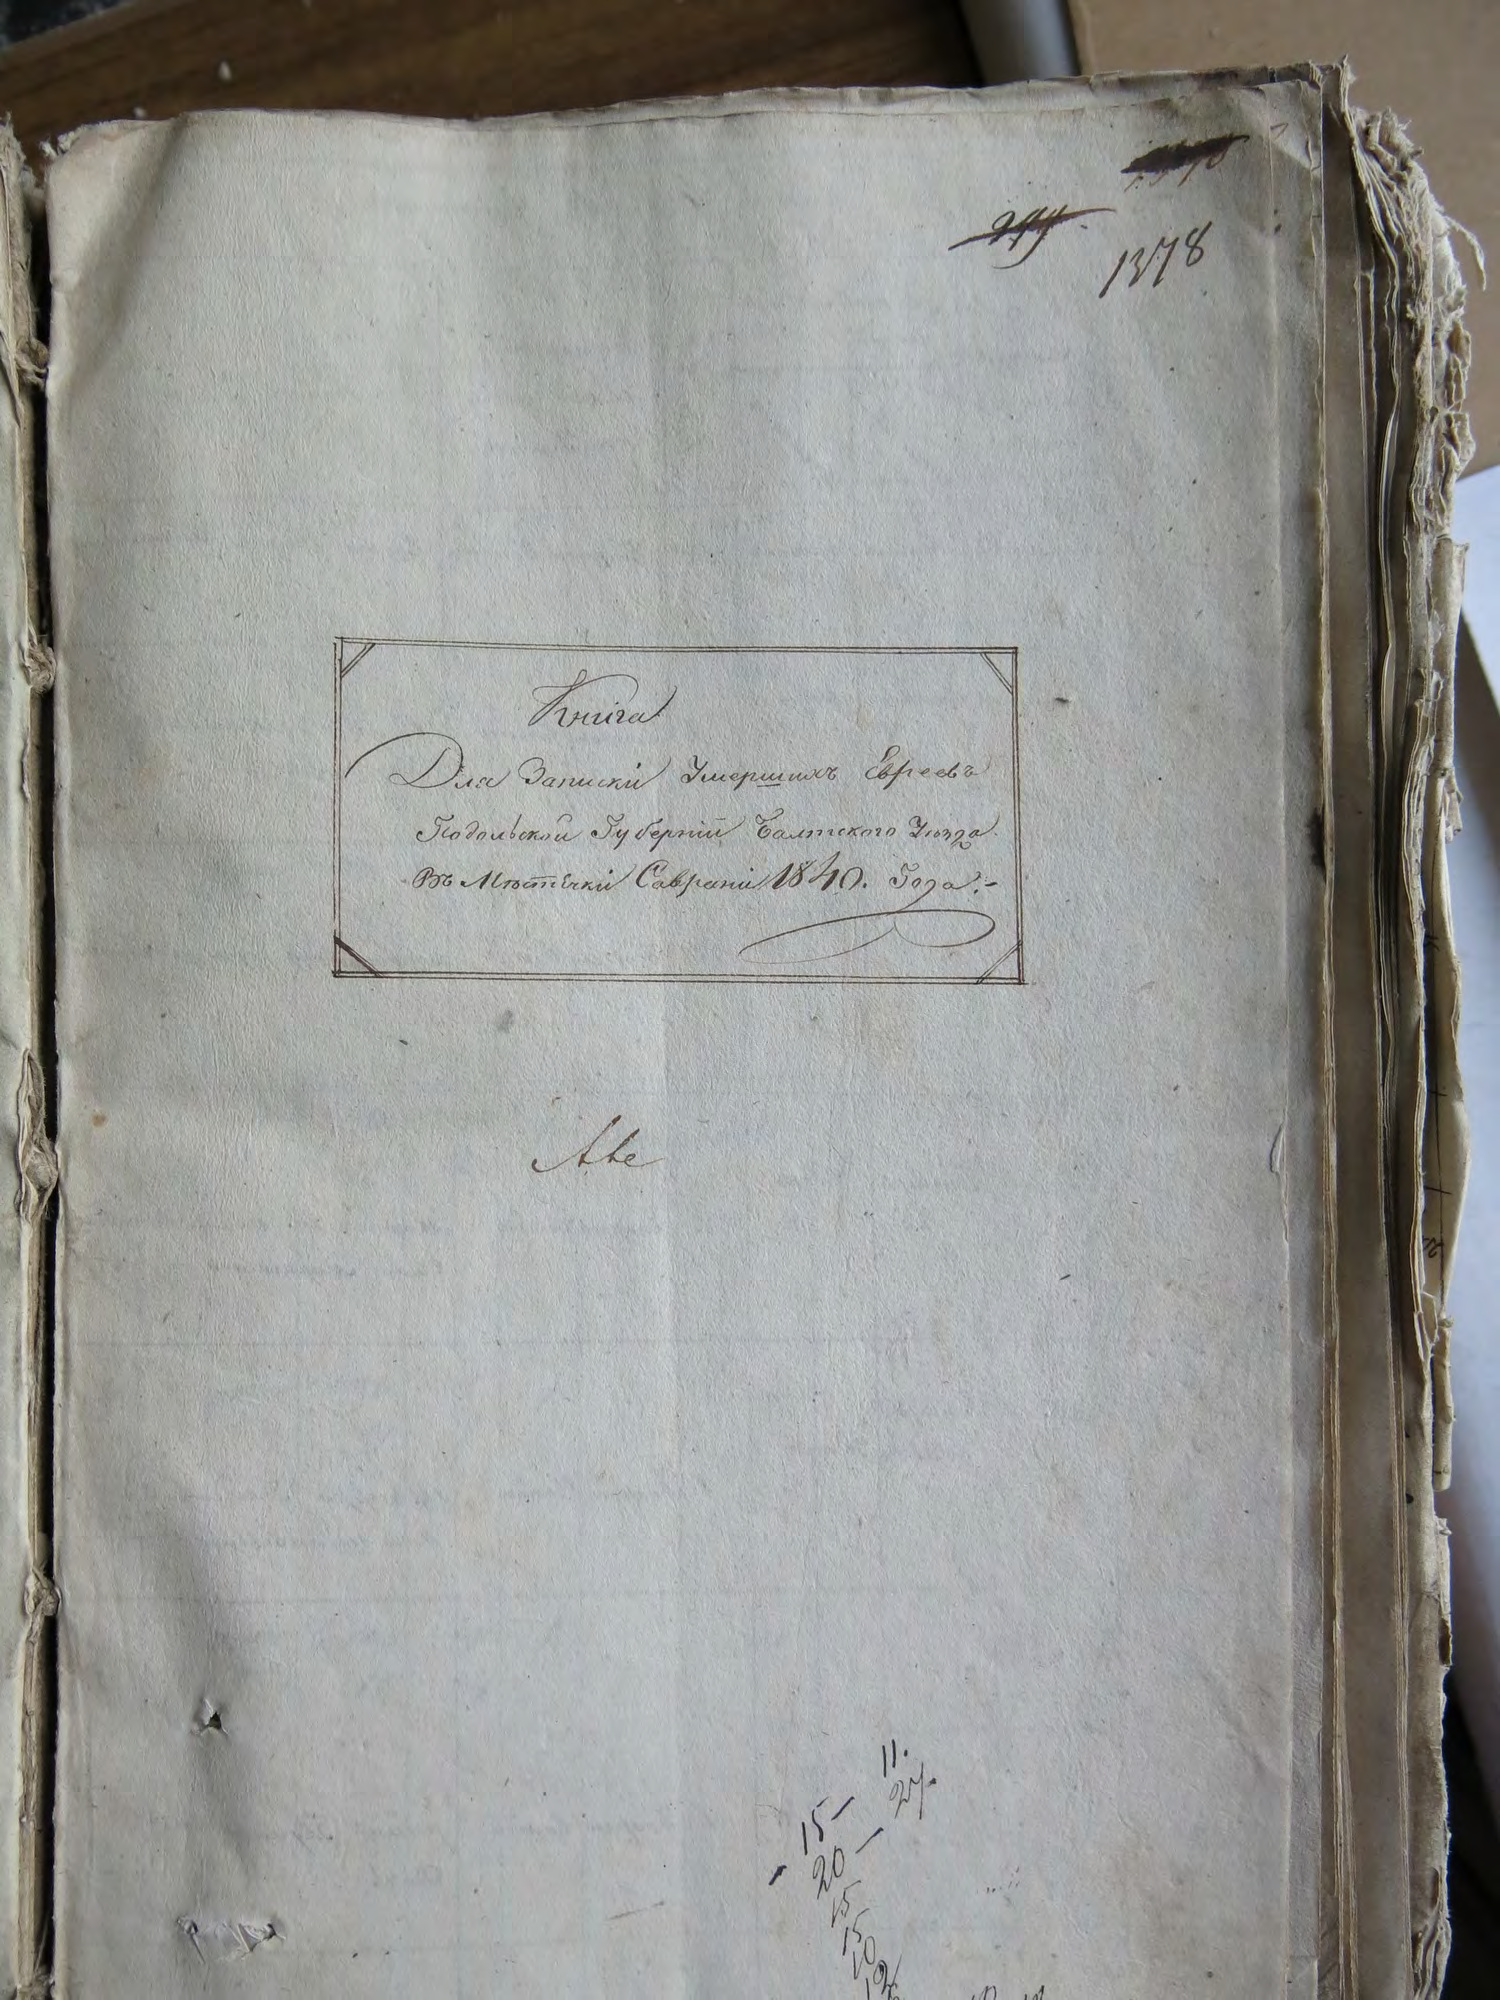 1378
Книга
Для Записки Умершихъ Евреевъ
Подольской Губерніи Балтского Уѣзда
Въ Мѣстечки Саврани 1840. Года.-
11.
15 — 27.
20 —
15
15
10
12